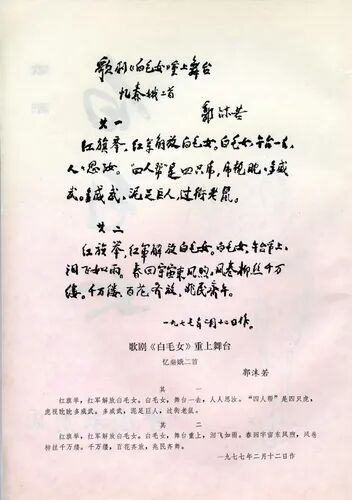 歌剧《白毛女》重上舞台
忆秦娥二首
郭沫若
其一
红旗举,红军解放白毛女。白毛女,舞台一去,
人人思汝。“四人帮”是四只虎,虎视眈眈多威
武。多威武,泥足巨人,过街老鼠。
其二
红旗举,红军解放白毛女。白毛女,舞台重上,
泪飞如雨。春回宇宙东风煦,风卷柳丝千万
缕。千万缕,百花齐放,兆民齐舞。
一九七七年二月十二日作。
歌剧《白毛女》重上舞台
忆秦娥二首
郭沫若
其一
红旗举,红军解放白毛女。白毛女,舞台一去,人人思汝。“四人帮”是四只虎,
虎视眈眈多威武。多威武,泥足巨人,过街老鼠。
其二
红旗举,红军解放白毛女。白毛女,舞台重上,泪飞如雨。春回宇宙东风煦,风卷
柳丝千万缕。千万缕,百花齐放,兆民齐舞。
一九七七年二月十二日作